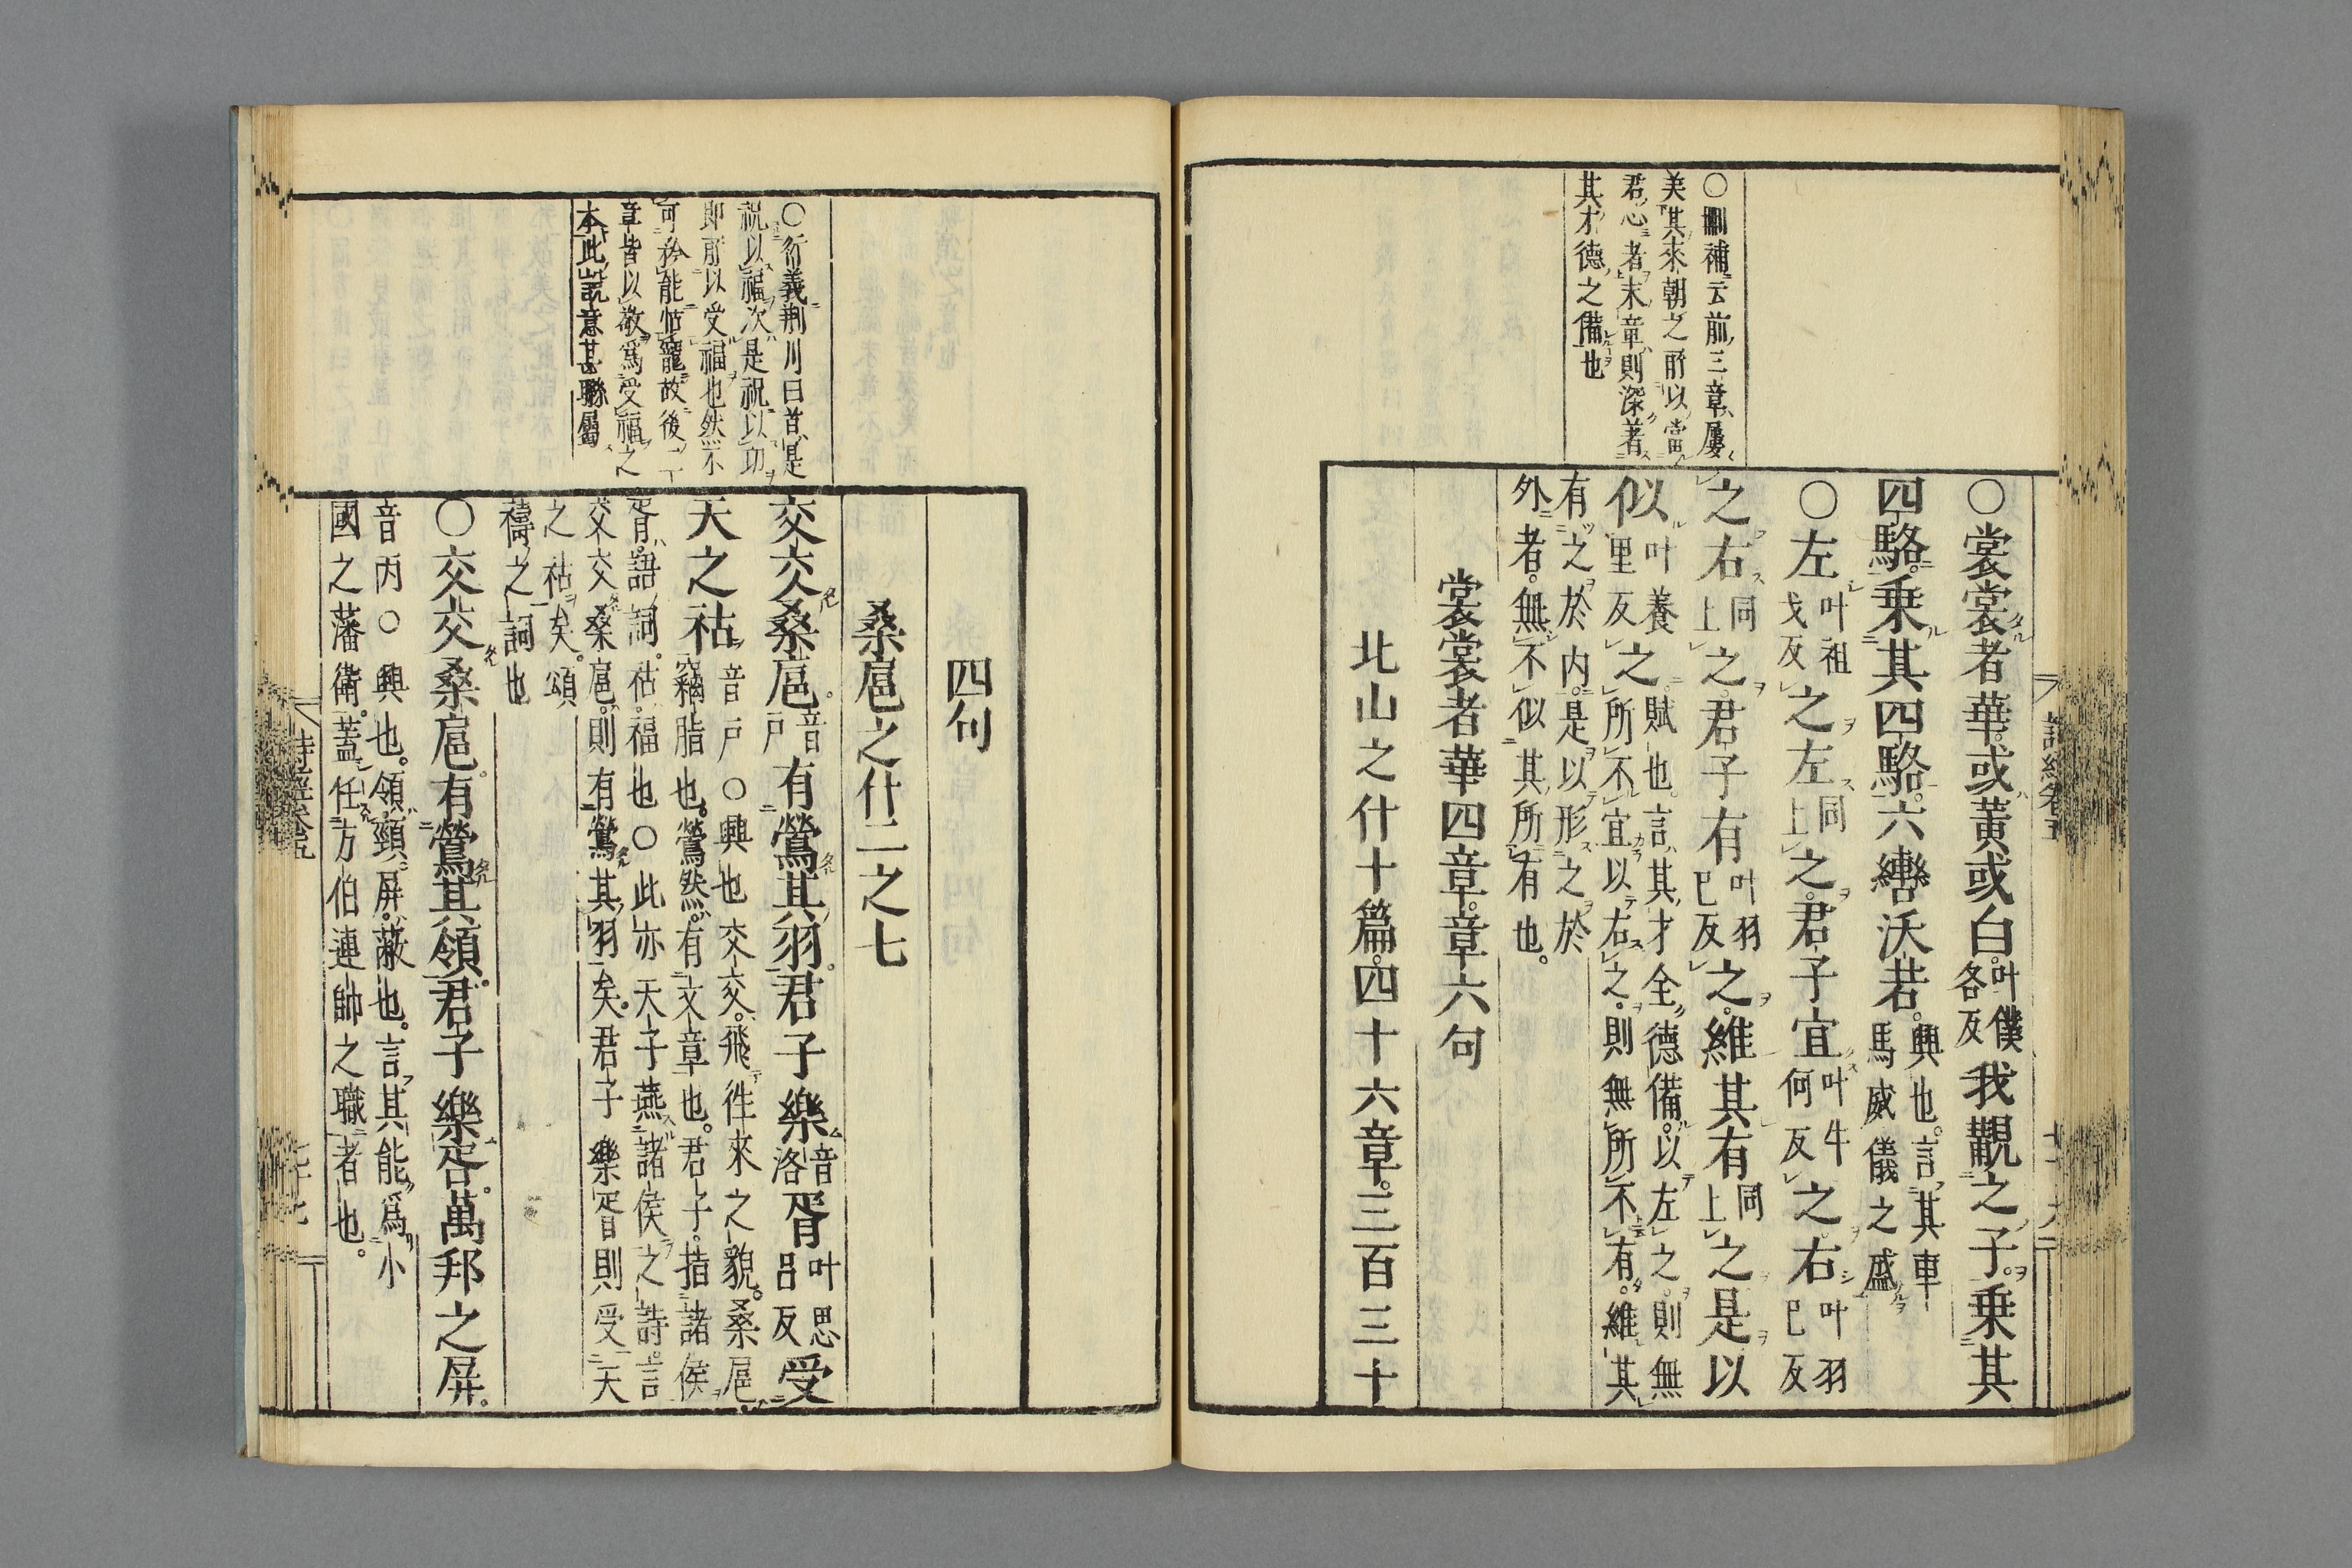 ○刪補云前三章屢
美其來朝之所以當
君心者末章則深著
其才德之備也
○裳裳者華或黃或白叶僕各反我覯之子乗其
四駱乗其四駱六轡沃若興也言其車馬威儀之盛
○左叶祖戈反之左同上之君子宜叶牛何反之右叶羽已反
之右同上之君子有叶羽已反之維其有同上之是以
似叶養里反之賦也言其才全德備以左之則無所不宜以右之則無所不有維其
有之於内是以形之於外者無不似其所有也
裳裳者華四章章六句
北山之什十篇四十六章三百三十
四句
桑扈之什二之七
○衍義荆川曰首是
祝以福次是祝以功
即所以受福也然不
可矜能怙寵故後二
章皆以敬爲受福之
本此說意甚聯屬
交交桑扈音戶有鶯其羽君子樂音洛胥叶思呂反受
天之祜音戶○興也交交飛徃來之貌桑扈竊脂也鶯然有文章也君子指諸侯
胥語詞祜福也○此亦天子燕諸侯之詩言交交桑扈則有鶯其羽矣君子樂胥則受天
之祜矣頌禱之詞也
○交交桑扈有鶯其領君子樂胥萬邦之屏
音丙○興也領頸屏蔽也言其能爲小國之藩衛蓋任方伯連帥之職者也